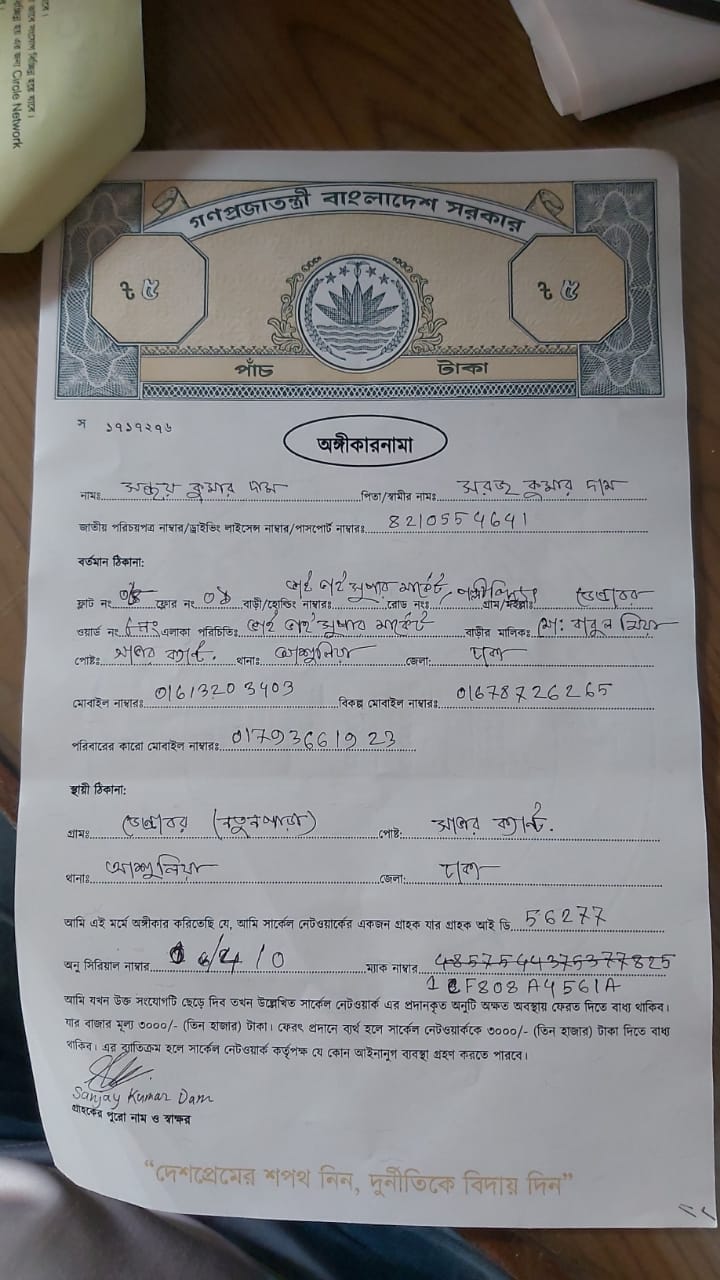 যাবে।
যাবে সংযোগ বিচ্ছিন্ন হয়ে যাবে।
Circle Network
গণপ্রজাতন্ত্রী বাংলাদেশ সরকার
৳ ৫ ৳ ৫
পাঁচ টাকা
স ১৭১৭২৭৬
অঙ্গীকারনামা
নামঃ সঞ্জয় কুমার দাম পিতা/স্বামীর নামঃ সরজু কুমার দাম
জাতীয় পরিচয়পত্র নাম্বার/ড্রাইভিং লাইসেন্স নাম্বার/পাসপোর্ট নাম্বারঃ 8210554641
বর্তমান ঠিকানা:
ফ্লাট নং ফ্লোর নং বাড়ী/হোল্ডিং নাম্বারঃ সুপার মার্কেট, রোড নংঃ পল্লীবিদ্যুৎ গ্রাম/মহল্লাঃ ডেন্ডাবর
ওয়ার্ড নং ৫নং এলাকা পরিচিতিঃ সুপার মার্কেট বাড়ীর মালিকঃ মো: বাবুল মিয়া
পোষ্টঃ সাভার ক্যান্ট. থানাঃ আশুলিয়া জেলা: ঢাকা
মোবাইল নাম্বারঃ 01613203403 বিকল্প মোবাইল নাম্বারঃ 01678726265
পরিবারের কারো মোবাইল নাম্বারঃ 01793661923
স্থায়ী ঠিকানা:
গ্রামঃ ডেন্ডাবর (নতুনপাড়া) পোষ্ট: সাভার ক্যান্ট.
থানাঃ আশুলিয়া জেলা: ঢাকা
আমি এই মর্মে অঙ্গীকার করিতেছি যে, আমি সার্কেল নেটওয়ার্কের একজন গ্রাহক যার গ্রাহক আই ডি 56277
অনু সিরিয়াল নাম্বার ম্যাক নাম্বার 4857544375377825
1CF808A4561A
আমি যখন উক্ত সংযোগটি ছেড়ে দিব তখন উল্লেখিত সার্কেল নেটওয়ার্ক এর প্রদানকৃত অনুটি অক্ষত অবস্থায় ফেরত দিতে বাধ্য থাকিব।
যার বাজার মূল্য ৩০০০/- (তিন হাজার) টাকা। ফেরৎ প্রদানে ব্যর্থ হলে সার্কেল নেটওয়ার্ককে ৩০০০/- (তিন হাজার) টাকা দিতে বাধ্য
থাকিব। এর ব্যতিক্রম হলে সার্কেল নেটওয়ার্ক কর্তৃপক্ষ যে কোন আইনানুগ ব্যবস্থা গ্রহণ করতে পারবে।
Sanjay Kumar Dam
গ্রাহকের পুরো নাম ও স্বাক্ষর
“দেশপ্রেমের শপথ নিন, দুর্নীতিকে বিদায় দিন”